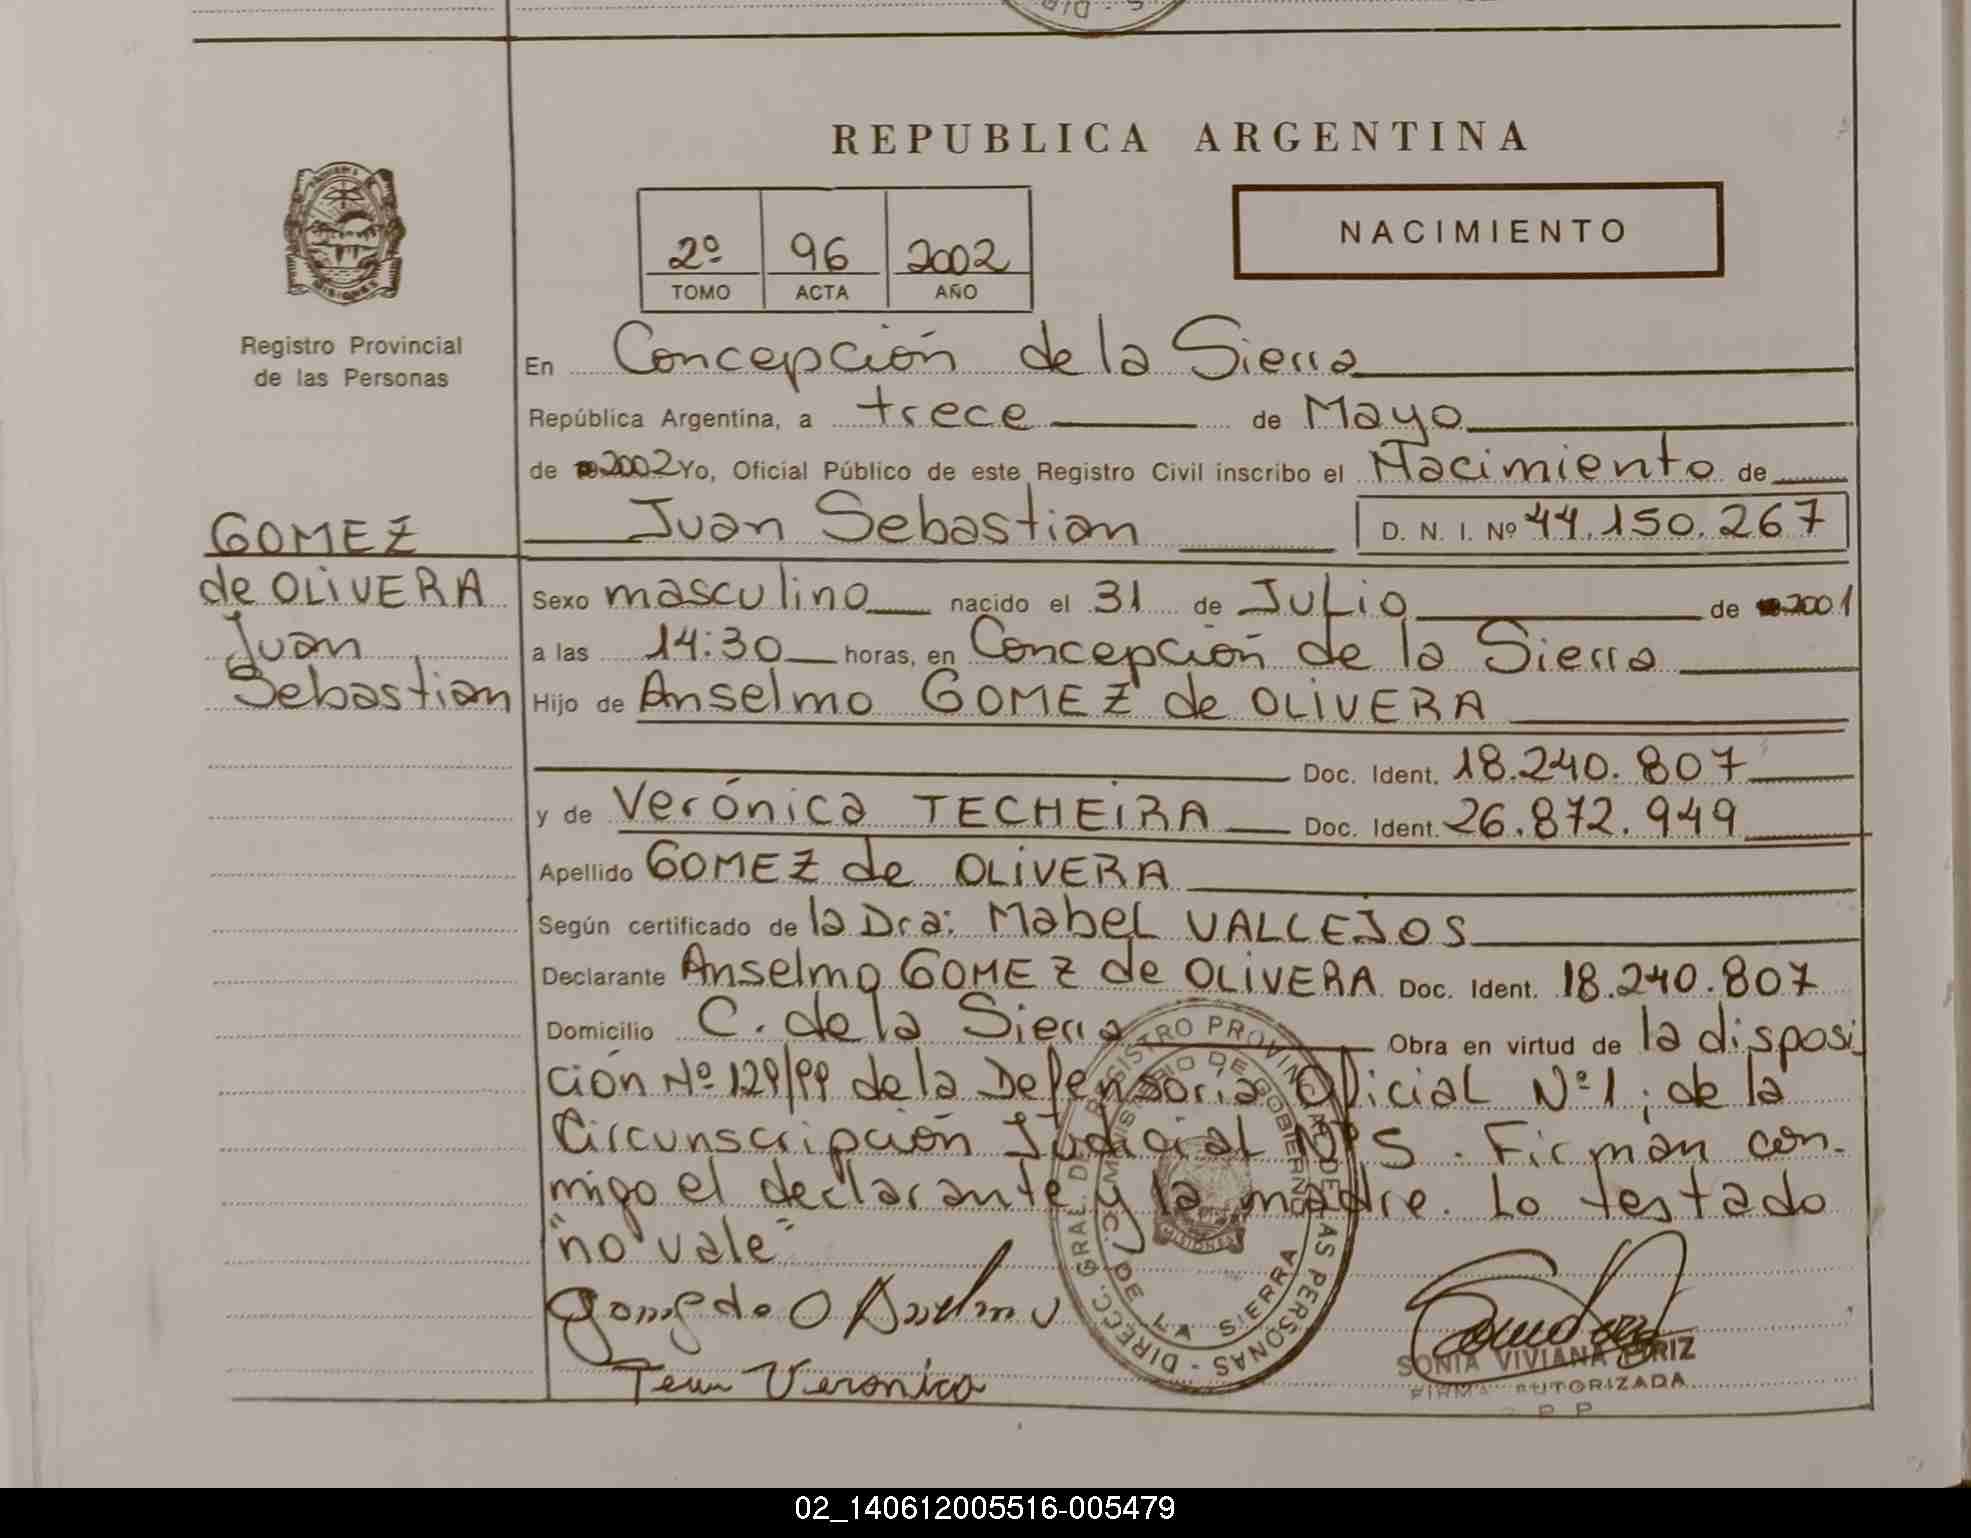 S - DIR
REPUBLICA ARGENTINA
NACIMIENTO
2º 96 2002
TOMO ACTA AÑO
MISIONES
Registro Provincial
de las Personas
En Concepción de la Sierra
República Argentina, a trece de Mayo
de 2002 Yo, Oficial Público de este Registro Civil inscribo el Nacimiento de
Juan Sebastian D. N. I. Nº 44.150.267
GOMEZ
de OLIVERA
Juan
Sebastian
Sexo masculino nacido el 31 de Julio de 2001
a las 14:30 horas, en Concepción de la Sierra
Hijo de Anselmo GOMEZ de OLIVERA
Doc. Ident. 18.240.807
y de Verónica TECHEIRA Doc. Ident. 26.872.949
Apellido GOMEZ de OLIVERA
Según certificado de la Dra: Mabel VALLEJOS
Declarante Anselmo GOMEZ de OLIVERA Doc. Ident. 18.240.807
Domicilio C. de la Sierra Obra en virtud de la disposi
ción Nº 129/99 de la Defensoría Oficial Nº 1; de la
Circunscripción Judicial Nº S. Firman con-
migo el declarante y la madre. Lo testado
"no vale"
Gomez de O Anselmo
Veronica
DIRECC. GRAL. DEL REGISTRO PROVINCIAL DE LAS PERSONAS
MINISTERIO DE GOBIERNO
C. DE LA SIERRA
MISIONES
SONIA VIVIANA
FIRMA AUTORIZADA
R P P
02_140612005516-005479